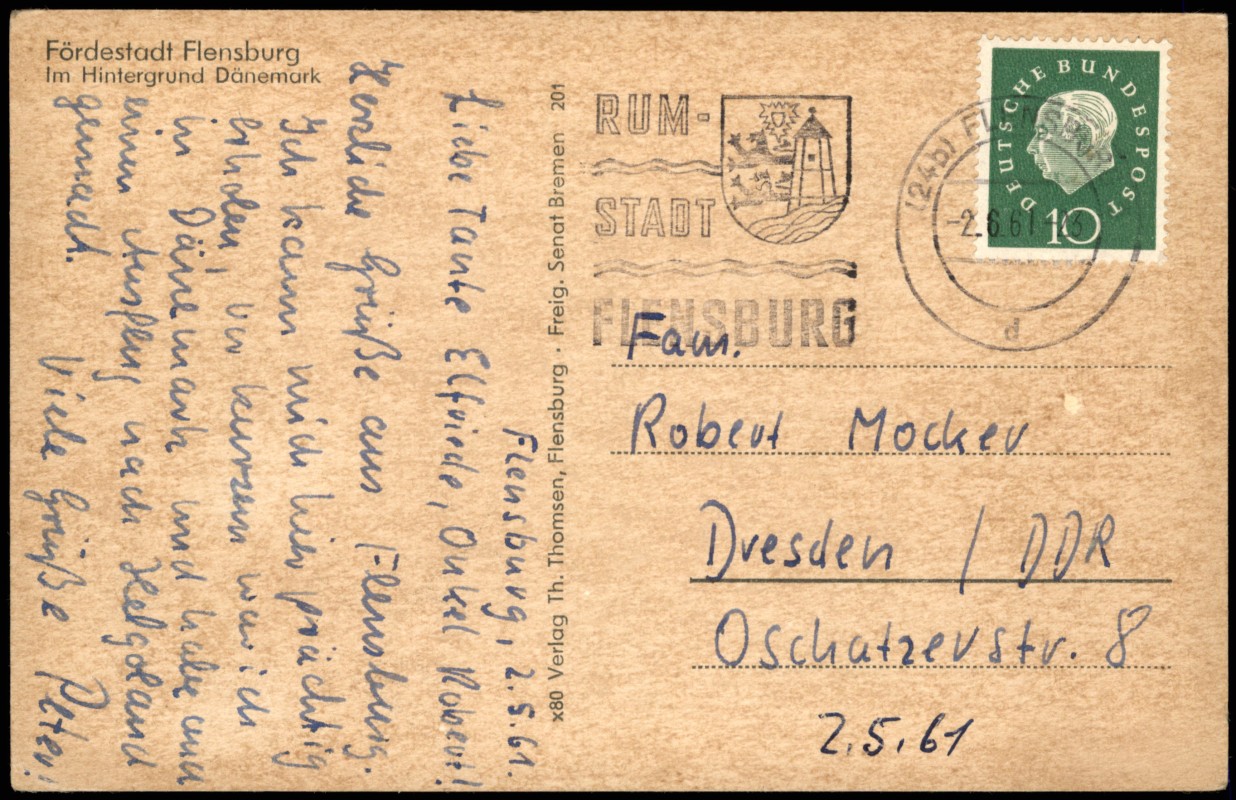 Fördestadt Flensburg
Im Hintergrund Dänemark
Flensburg, 2.5.61.
Liebe Tante Elfriede, Onkel Robert!
Herzliche Grüße aus Flensburg.
Ich kann mich hier prächtig
erholen, vor kurzem war ich
in Dänemark und habe auch
einen Ausflug nach Helgoland
gemacht.
Viele Grüße Peter!
x80 Verlag Th. Thomsen, Flensburg · Freig. Senat Bremen 201
RUM-
STADT
FLENSBURG
(24b) FLENSBURG
-2.6.61-
d
DEUTSCHE BUNDESPOST
10
Fam.
Robert Mocker
Dresden / DDR
Oschatzerstr. 8
2.5.61